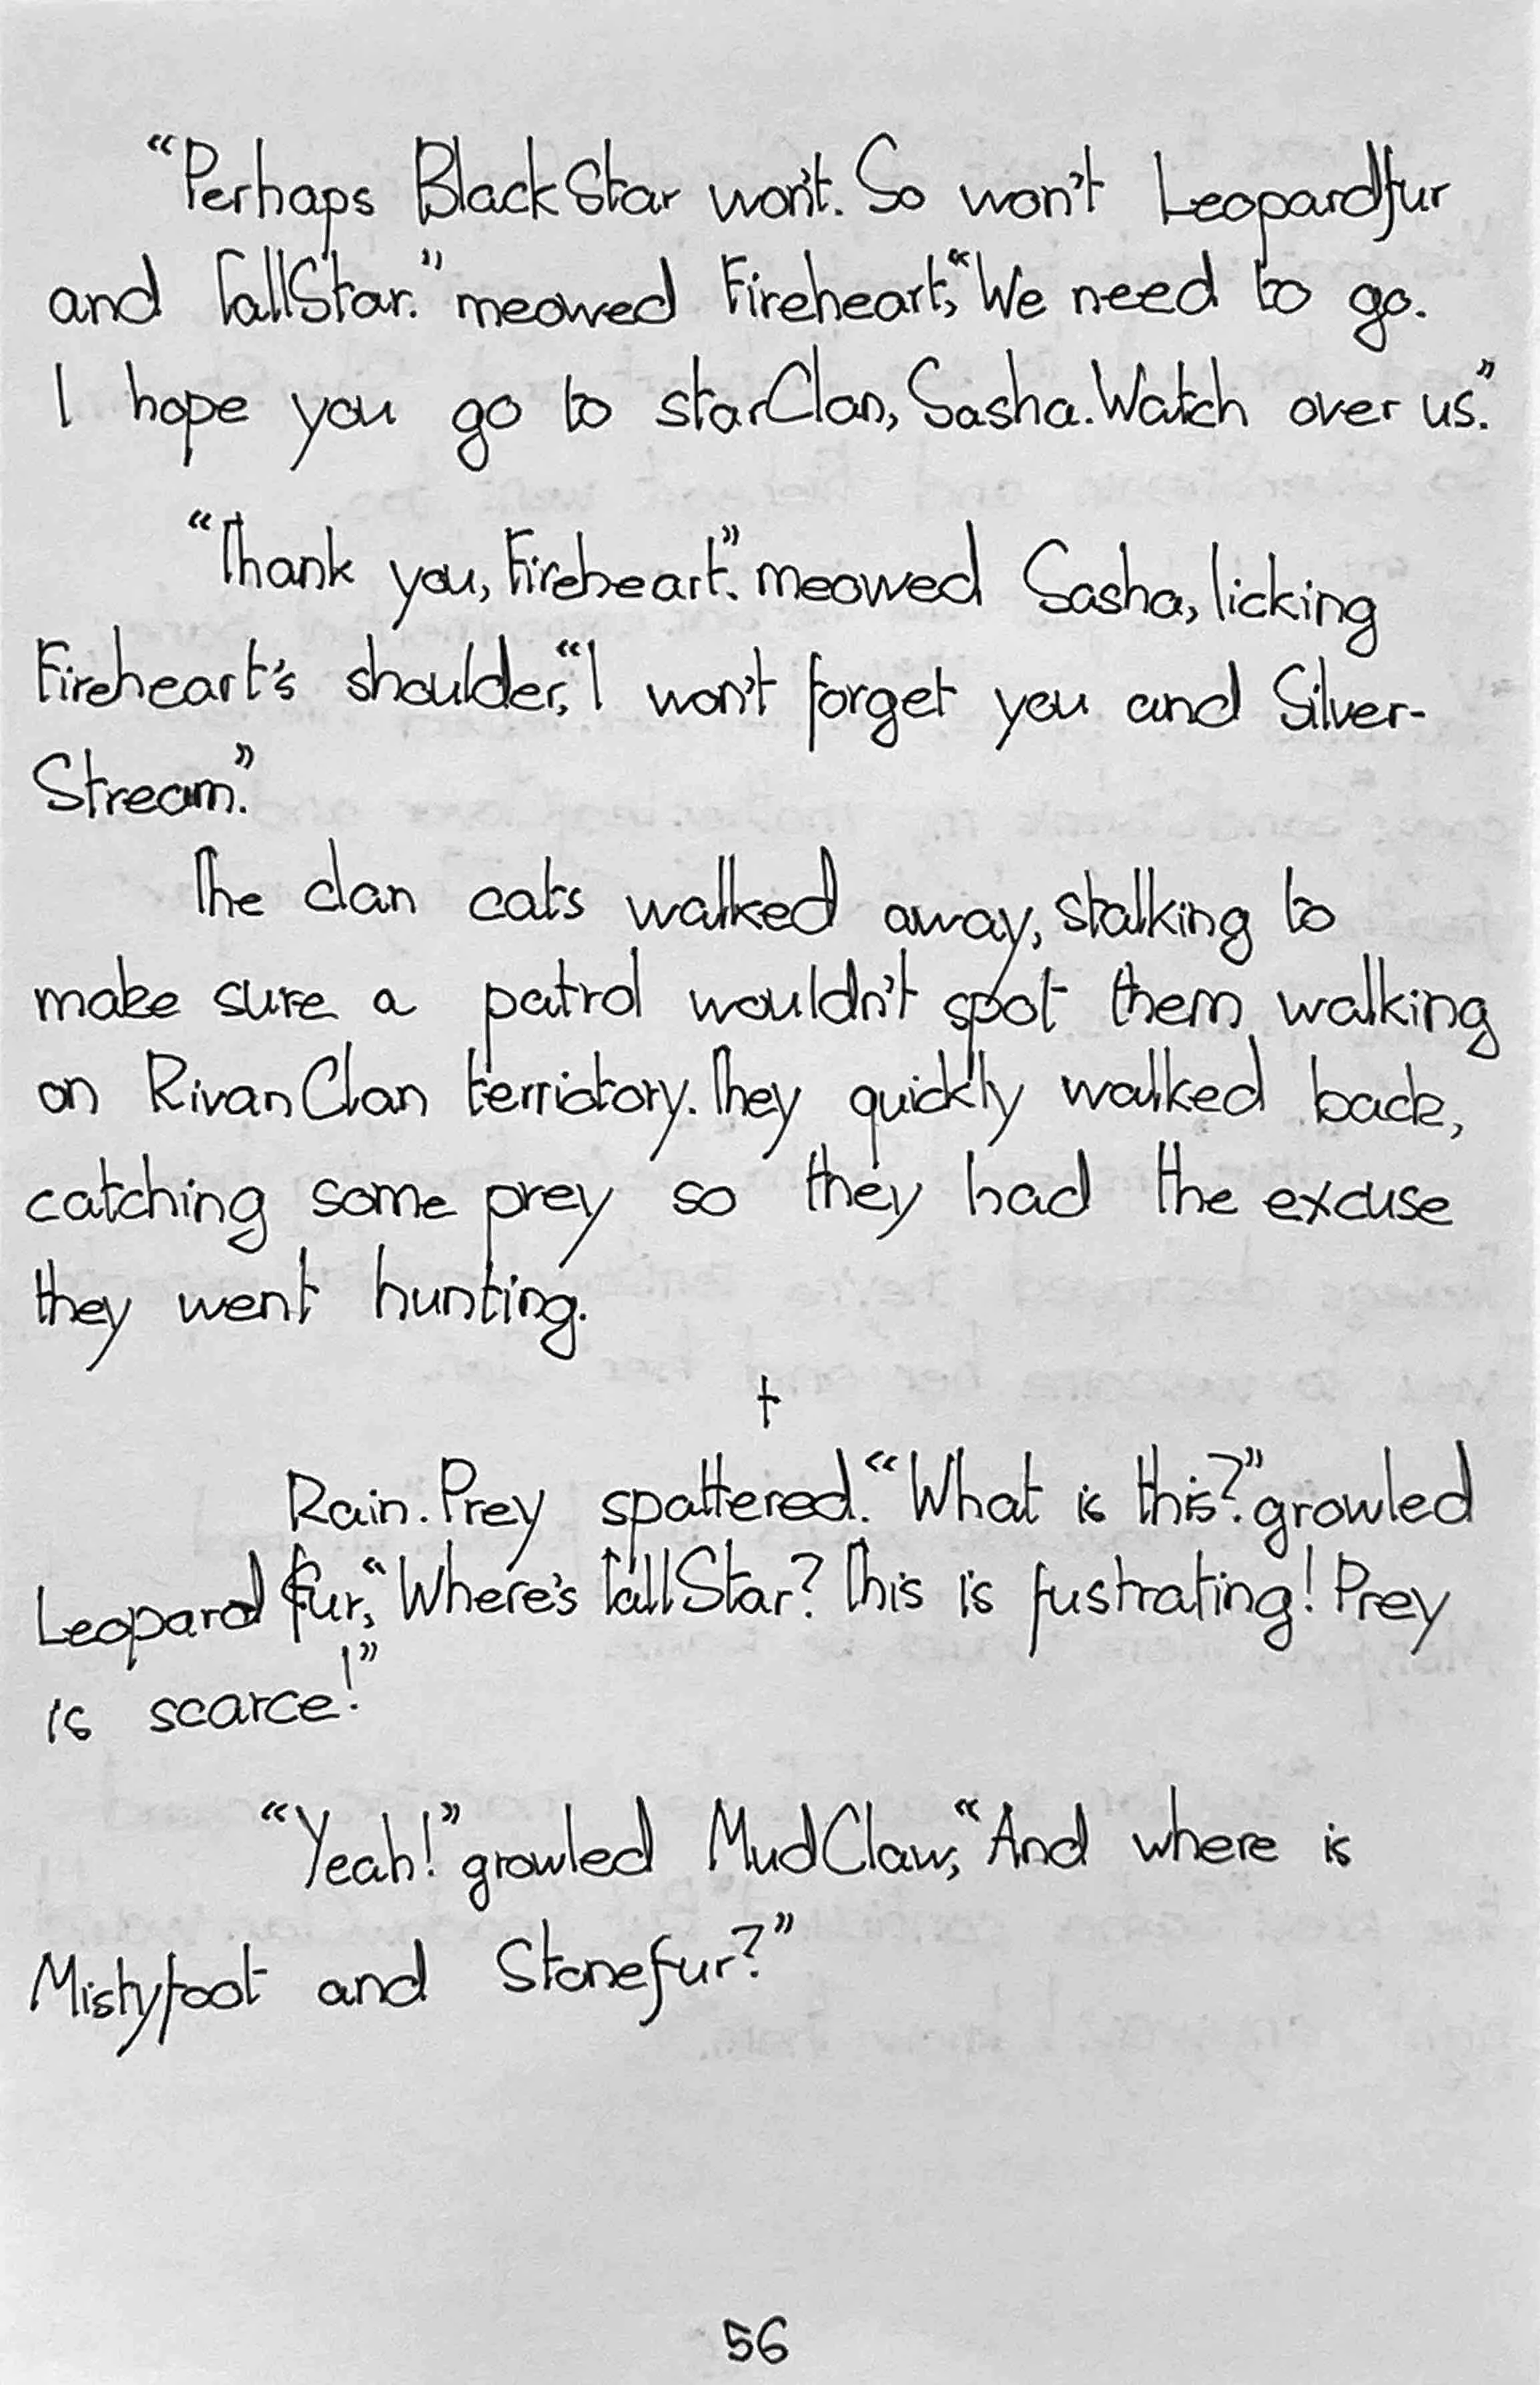 “Perhaps BlackStar won't. So won't Leopardfur
and TallStar.” meowed Fireheart, “We need to go.
I hope you go to starClan, Sasha. Watch over us.”
“Thank you, Fireheart.” meowed Sasha, licking
Fireheart's shoulder, “I won't forget you and Silver-
Stream.”
The clan cats walked away, stalking to
make sure a patrol wouldn't spot them walking
on RivanClan terriotory. They quickly walked back,
catching some prey so they had the excuse
they went hunting.
†
Rain. Prey spattered. “What is this?” growled
Leopard fur, “Where's TallStar? This is fustrating! Prey
is scarce!”
“Yeah!” growled MudClaw, “And where is
Mistyfoot and Stonefur?”
56